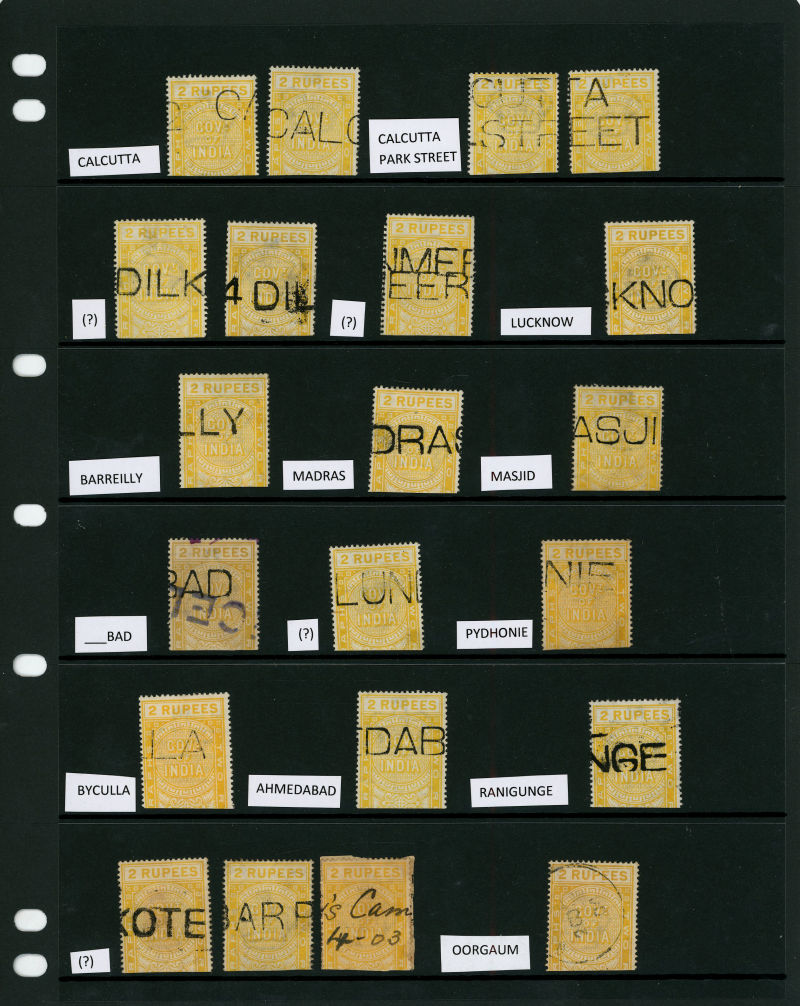 2 RUPEES
CA
GOVT OF
INDIA
2 RUPEES
CALC
2 RUPEES
CUTT
STREET
2 RUPEES
A
EET
CALCUTTA
CALCUTTA
PARK STREET
2 RUPEES
DILK
2 RUPEES
4 DIL
2 RUPEES
EER
2 RUPEES
KNO
(?)
(?)
LUCKNOW
2 RUPEES
LLY
INDIA
2 RUPEES
DRAS
INDIA
2 RUPEES
ASJI
INDIA
BARREILLY
MADRAS
MASJID
2 RUPEES
BAD
INDIA
2 RUPEES
LUN
INDIA
2 RUPEES
NIE
INDIA
___BAD
(?)
PYDHONIE
2 RUPEES
LLA
INDIA
2 RUPEES
DAB
INDIA
2 RUPEES
NGE
BYCULLA
AHMEDABAD
RANIGUNGE
2 RUPEES
KOTE
2 RUPEES
BAR R
2 RUPEES
's Cam
03
2 RUPEES
INDIA
(?)
OORGAUM